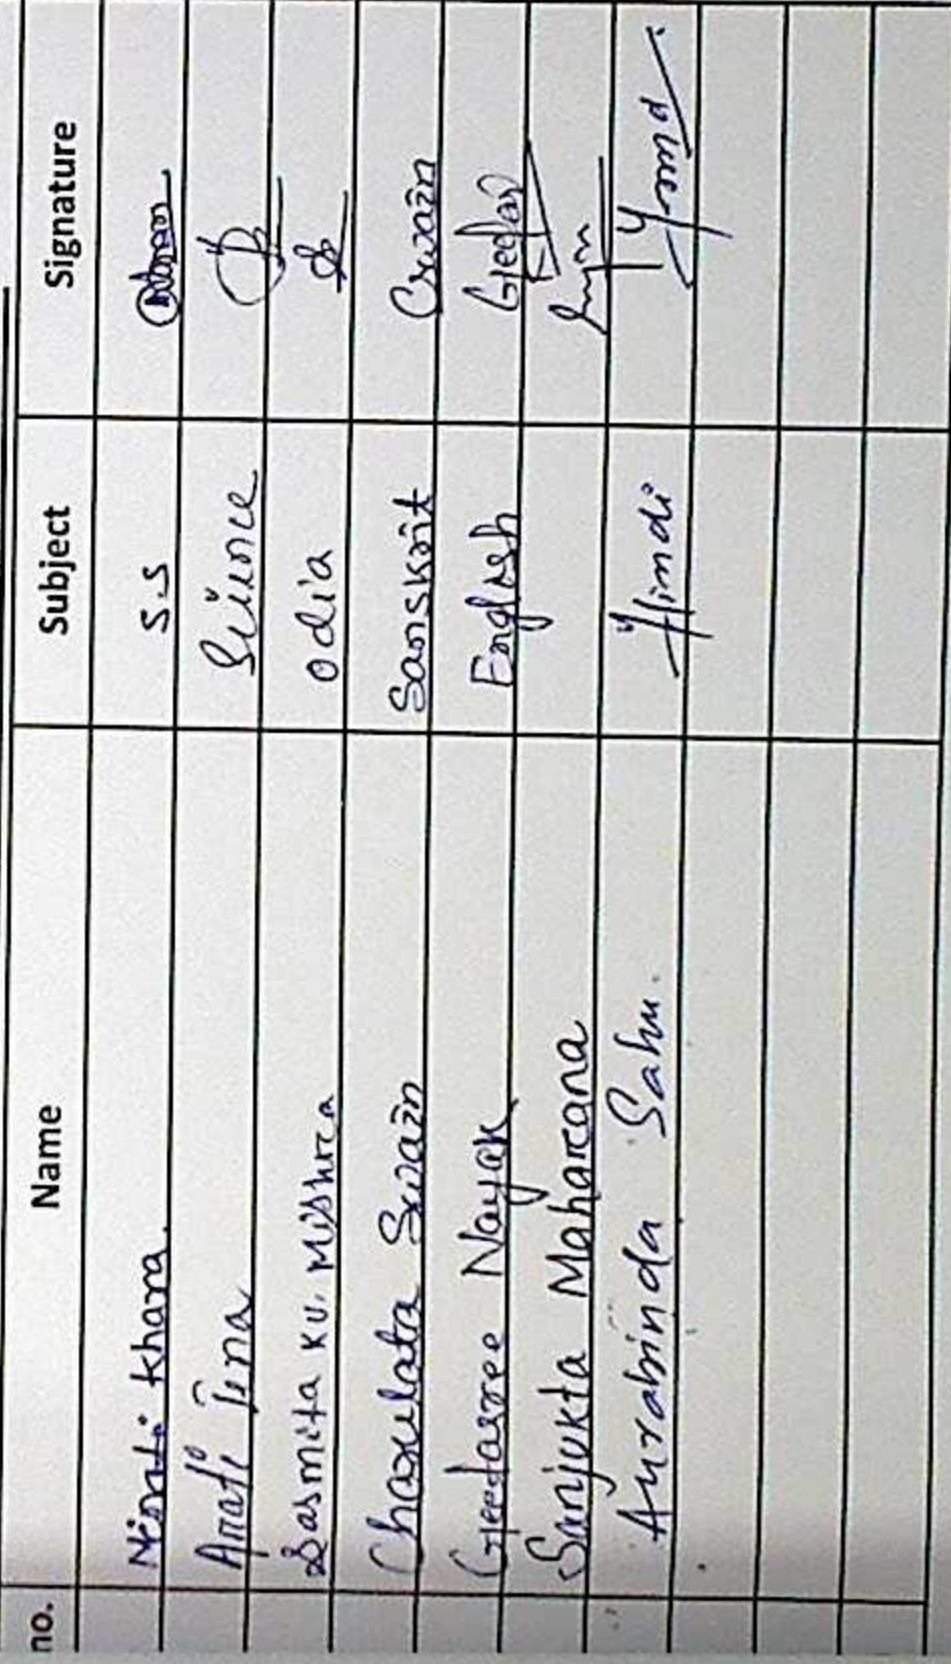 no. Name Subject Signature
Khara. S.S
Arati Jena Science
Sasmita Ku. Mishra Odia
Charulata Swain Sanskrit Cswain
Geetasree Nayak English
Sanjukta Maharana
Aurabinda Sahu. Hindi